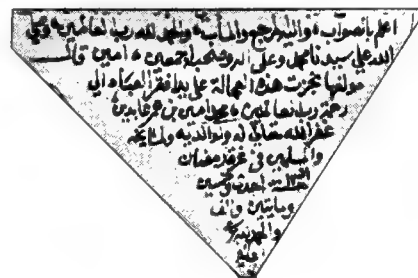 اعلم بالصواب، واليه المرجع والمآب، والحمد لله رب العالمين، وصلى
الله على سيدنا محمد وعلى اله وصحبه اجمعين، امين قال
مولفها نجزت هذه العجالة على يد افقر العباد الى
رحمة رب العالمين، محمد امين بن عمر عابدين
غفر الله تعالى له ولوالديه ولمشايخه
والمسلمين في غرة رمضان
سنة احدى وخمسين
ومايتين والف
والحمد لله